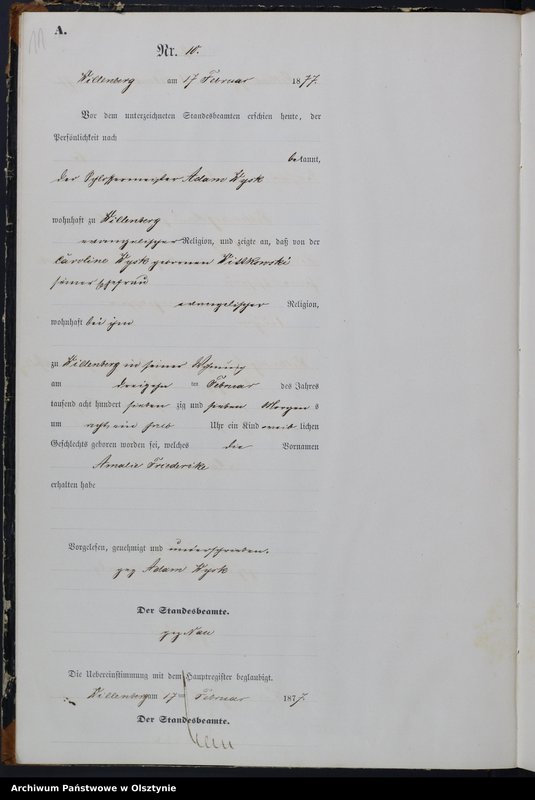 11
A.
Nr. 10.
Willenberg am 17 Februar 1877.
Vor dem unterzeichneten Standesbeamten erschien heute, der
Persönlichkeit nach
bekannt,
der Schlossermeister Adam Wysk
wohnhaft zu Willenberg
evangelischer Religion, und zeigte an, daß von der
Caroline Wysk geborenen Wittkowski
seiner Ehefrau
evangelischer Religion,
wohnhaft bei ihm
zu Willenberg in seiner Wohnung
am dreizehn ten Februar des Jahres
tausend acht hundert sieben zig und sieben Morgen s
um acht ein halb Uhr ein Kind weib lichen
Geschlechts geboren worden sei, welches die Vornamen
Amalie Friederike
erhalten habe
Vorgelesen, genehmigt und unterschrieben.
gez Adam Wysk
Der Standesbeamte.
gez Nau
Die Uebereinstimmung mit dem Hauptregister beglaubigt.
Willenberg am 17 ten Februar 1877.
Der Standesbeamte.
Archiwum Państwowe w Olsztynie